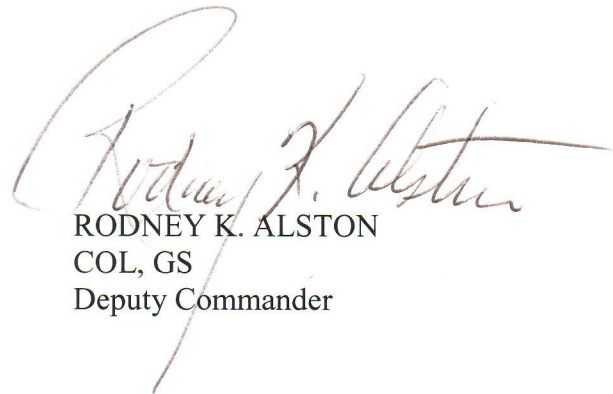 Rodney K. Alston
RODNEY K. ALSTON
COL, GS
Deputy Commander